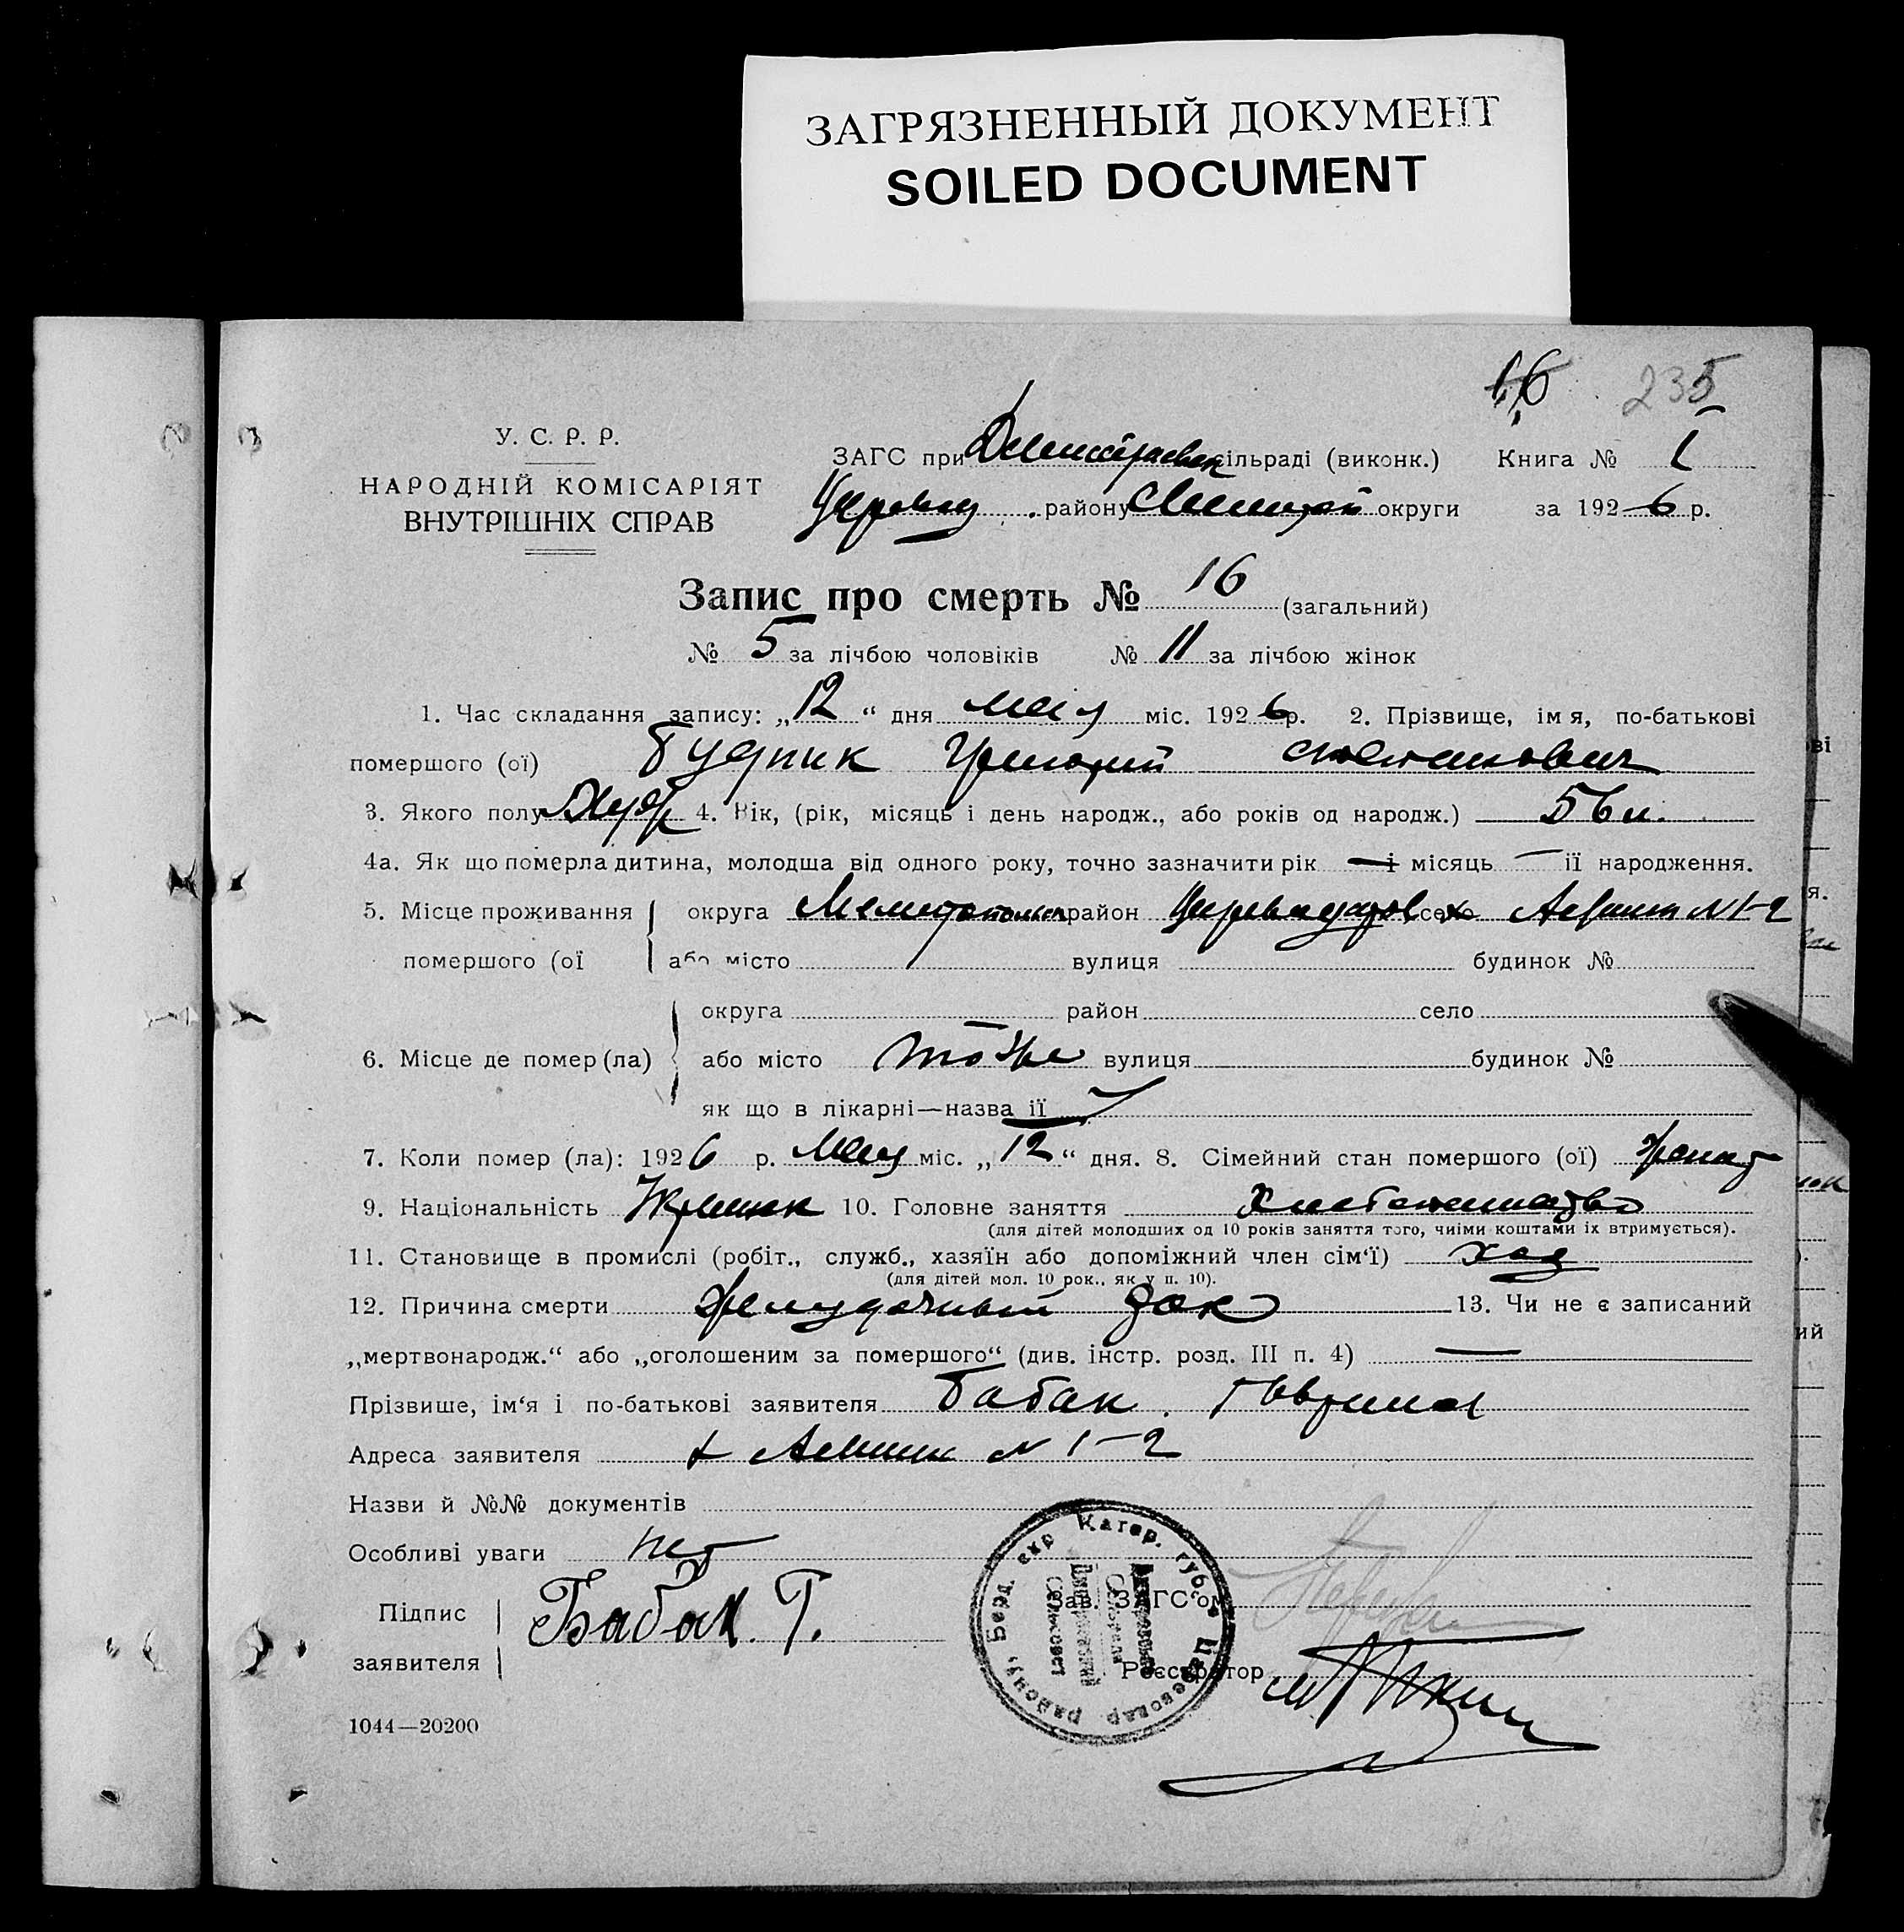 ЗАГРЯЗНЕННЫЙ ДОКУМЕНТ
SOILED DOCUMENT
16 235
У. С. Р. Р.
НАРОДНІЙ КОМІСАРІЯТ
ВНУТРІШНІХ СПРАВ
ЗАГС при сільраді (виконк.) Книга № 1
району округи за 1926 р.
Запис про смерть № 16 (загальний)
№ 5 за лічбою чоловіків № 11 за лічбою жінок
1. Час складання запису: „12“ дня мая міс. 1926 р. 2. Прізвище, імя, по-батькові
помершого (ої) Будник Григорий
3. Якого полу Муж 4. Вік, (рік, місяць і день народж., або років од народж.) 56 л.
4а. Як що померла дитина, молодша від одного року, точно зазначити рік — і місяць — ії народження.
5. Місце проживання округа Мелитопольск район село № 1-2
помершого (ої або місто вулиця будинок №
округа район село
6. Місце де помер (ла) або місто тоже вулиця будинок №
як що в лікарні—назва ії
7. Коли помер (ла): 1926 р. мая міс. „12“ дня. 8. Сімейний стан помершого (ої) женат
9. Національність 10. Головне заняття Хлебопашество
(для дітей молодших од 10 років заняття того, чиїми коштами їх втримується).
11. Становище в промислі (робіт., служб., хазяїн або допоміжний член сім‘ї) хоз
(для дітей мол. 10 рок., як у п. 10).
12. Причина смерти Желудочный 13. Чи не є записаний
„мертвонародж.“ або „оголошеним за помершого“ (див. інстр. розд. III п. 4) —
Прізвише, ім‘я і по-батькові заявителя Бабак Гавриил
Адреса заявителя № 1-2
Назви й №№ документів
Особливі уваги нет
Підпис
заявителя
Бабак. Г.
Зав. ЗАГС‘ом
Реєстратор
Катер. губ. Царевокар району, Берд. окр
1044—20200